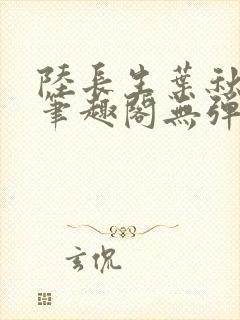 陸長生葉秋
筆趣閣無彈
玄倪